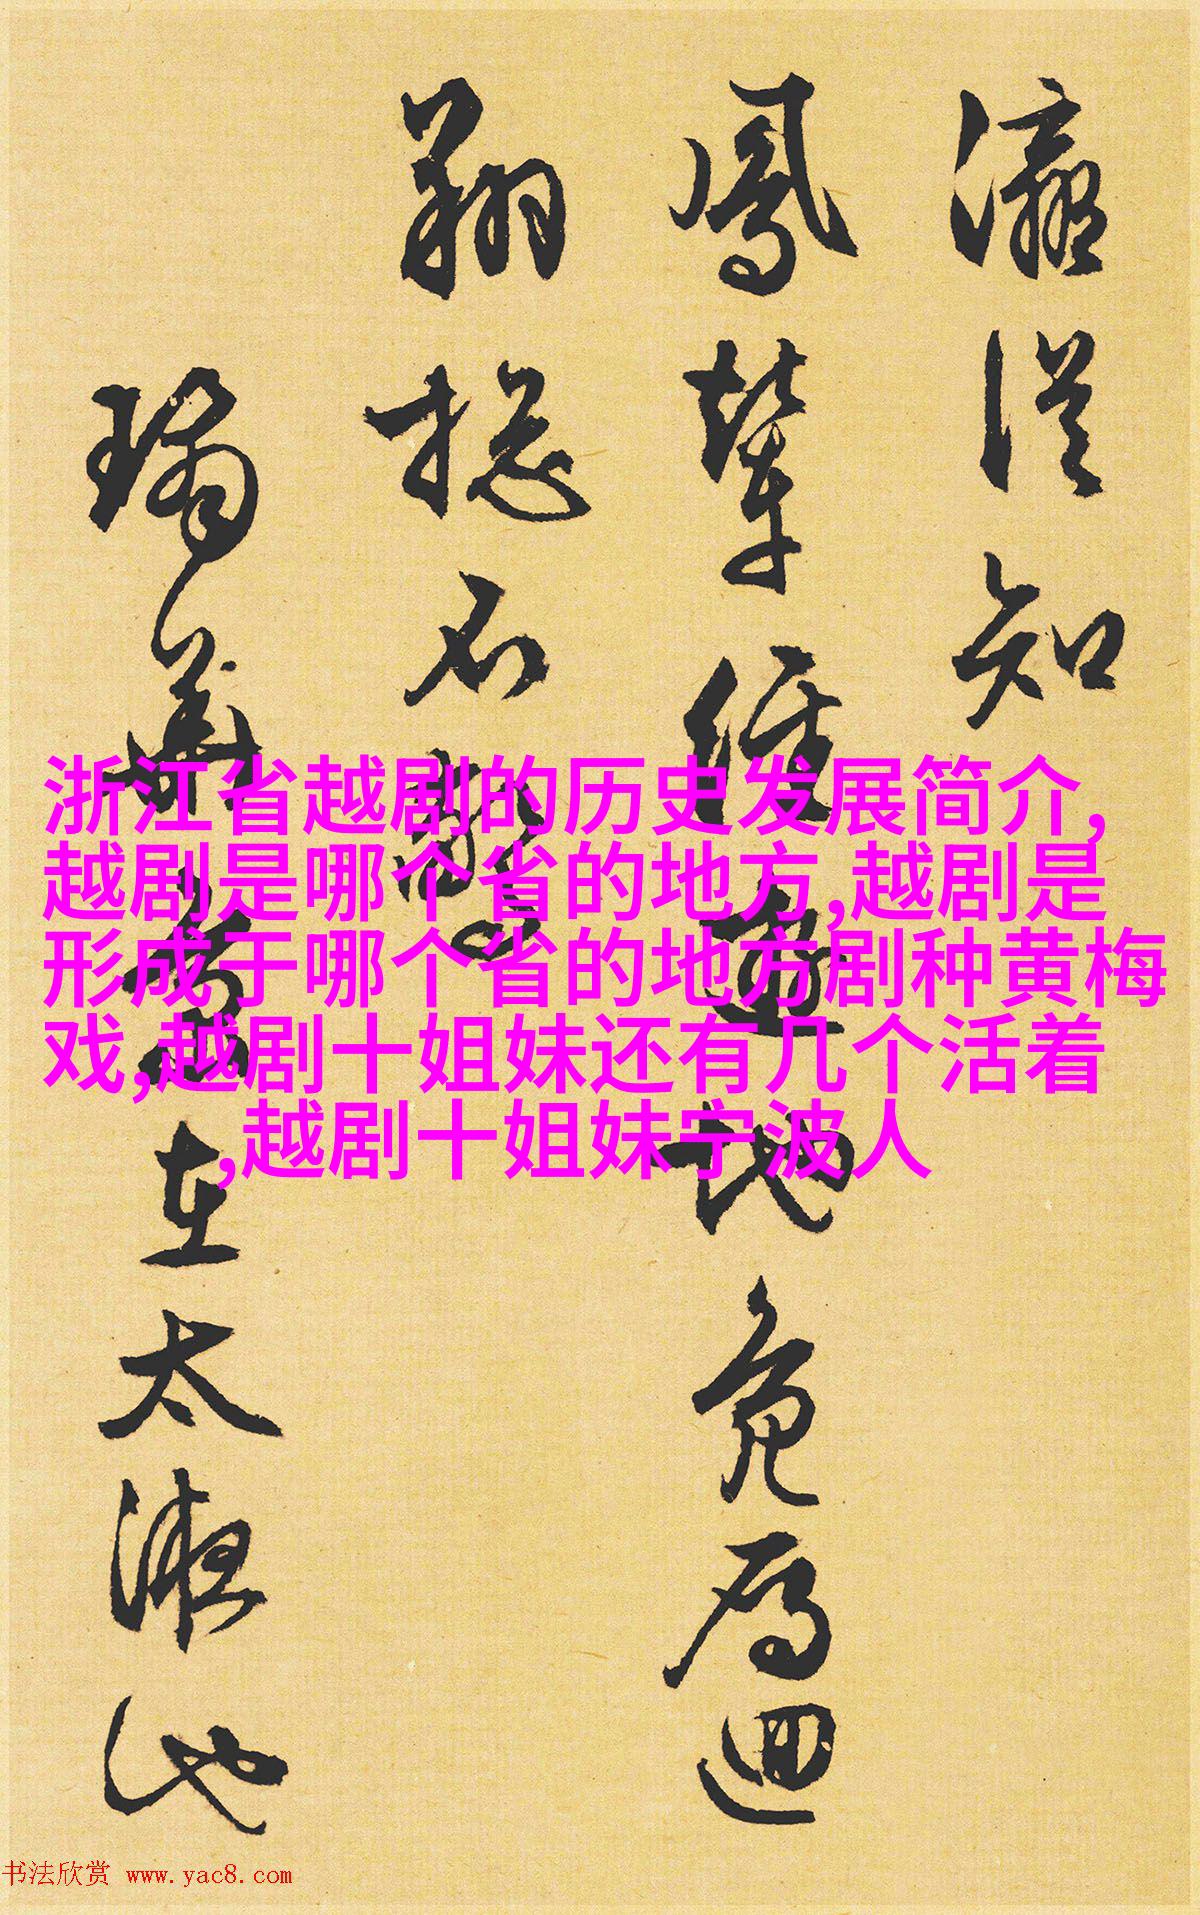 浙江省越剧的历史发展简介,
越剧是哪个省的地方,越剧是
形成于哪个省的地方剧种黄梅
戏,越剧十姐妹还有几个活着
,越剧十姐妹宁波人
瀛 知
鳳輦經遊地 迴
翔
在太液池
书法欣赏 www.yac8.com